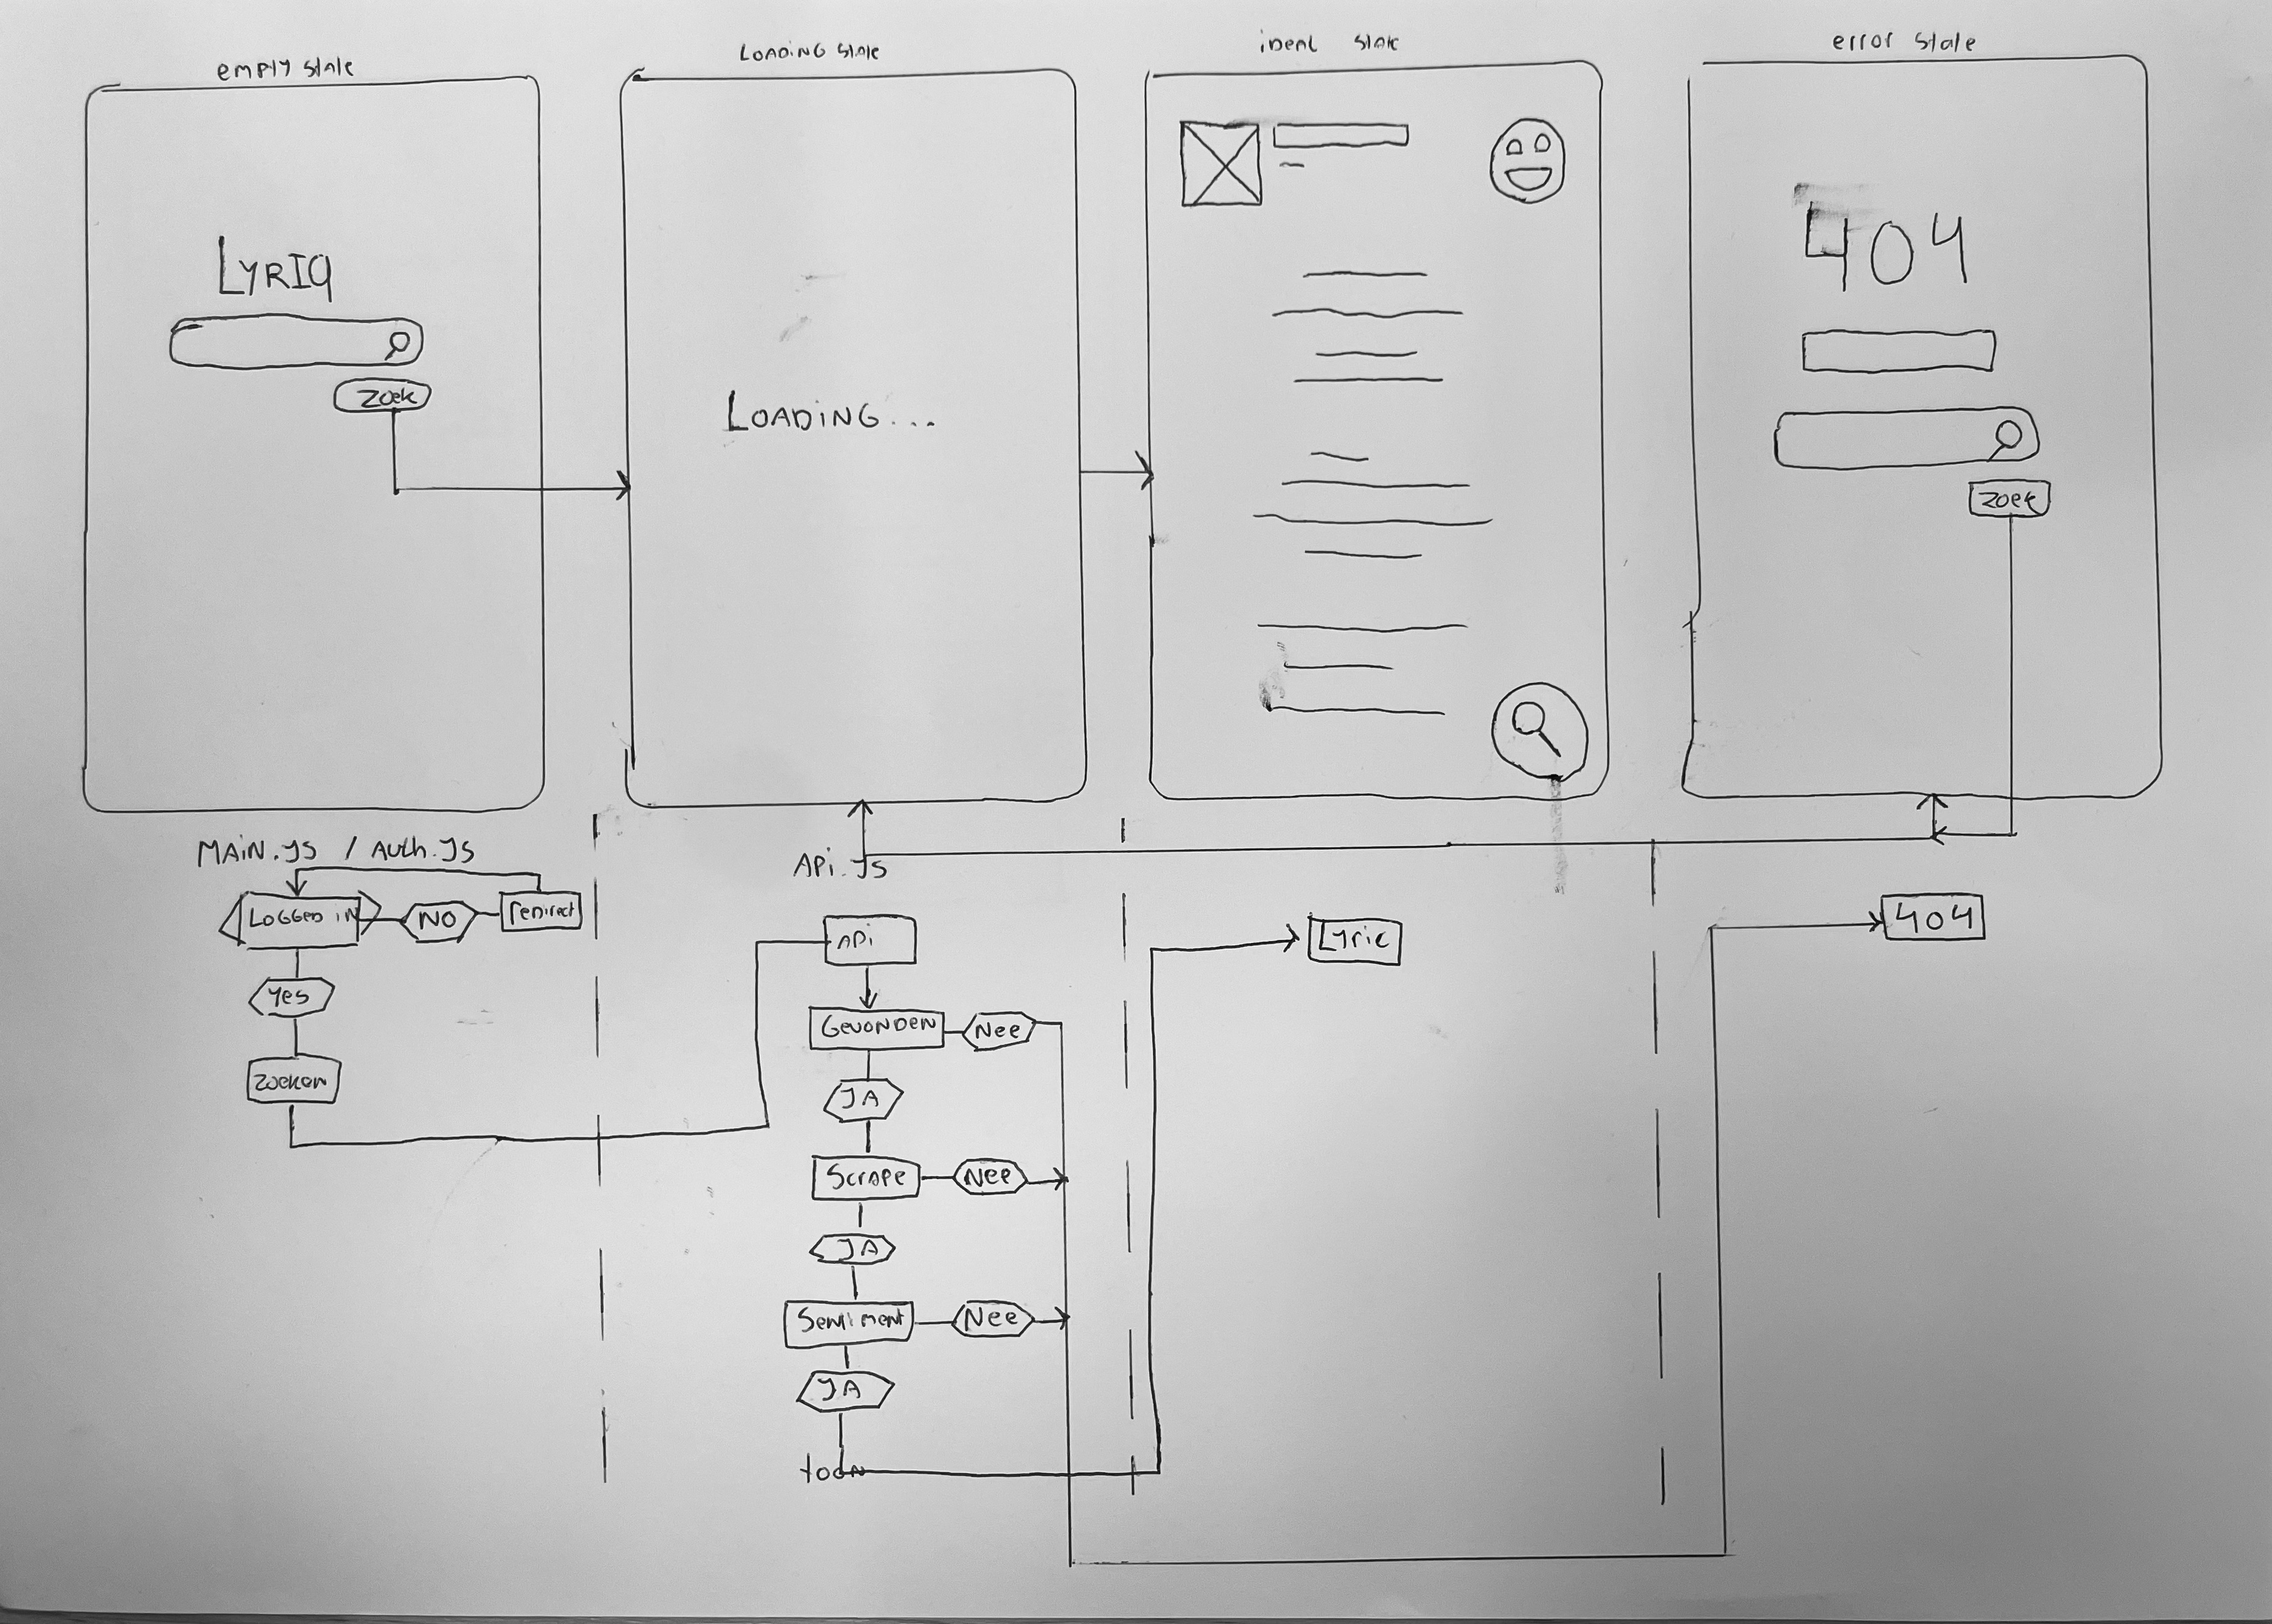 empty state
LOADING state
iDeAL state
error state
LYRIQ
Zoek
LOADING...
404
Zoek
MAIN.JS / AUth.JS
LOGGED IN
NO
redirect
Yes
Zoeken
APi.JS
APi
GEVONDEN
Nee
JA
Scrape
Nee
JA
Sentiment
Nee
JA
toon
Lyric
404